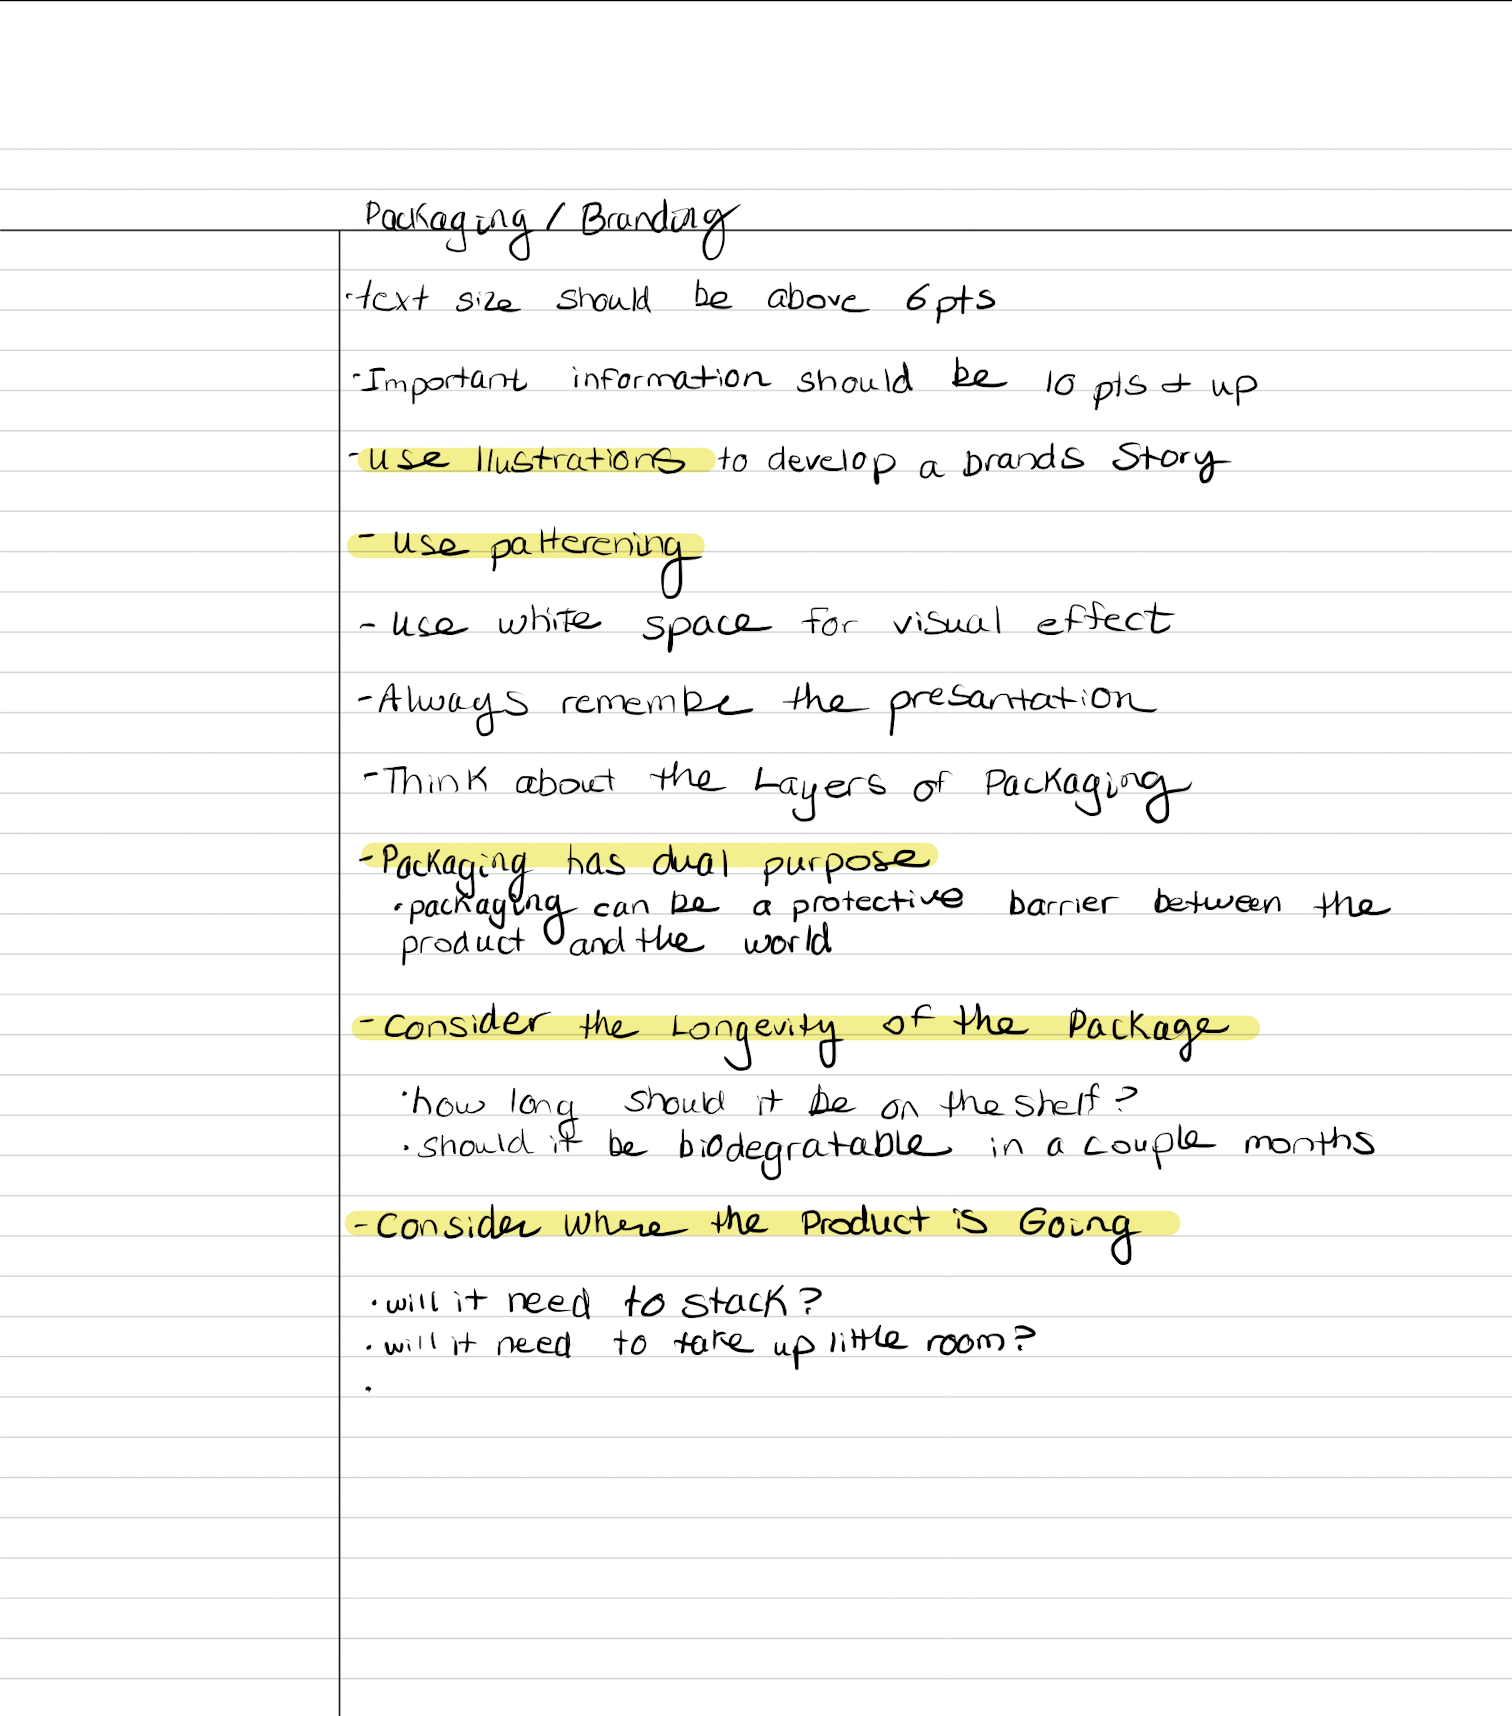 Packaging / Branding
·text size should be above 6pts
·Important information should be 10 pts + up
-use Ilustrations to develop a brands Story
- use patterening
- use white space for visual effect
-Always remembe the presantation
-Think about the Layers of Packaging
-Packaging has dual purpose
·packaging can be a protective barrier between the
product and the world
-Consider the Longevity of the Package
·how long should it be on the shelf?
·should it be biodegratable in a couple months
-Consider where the Product is Going
·will it need to stack?
·will it need to take up little room?
·